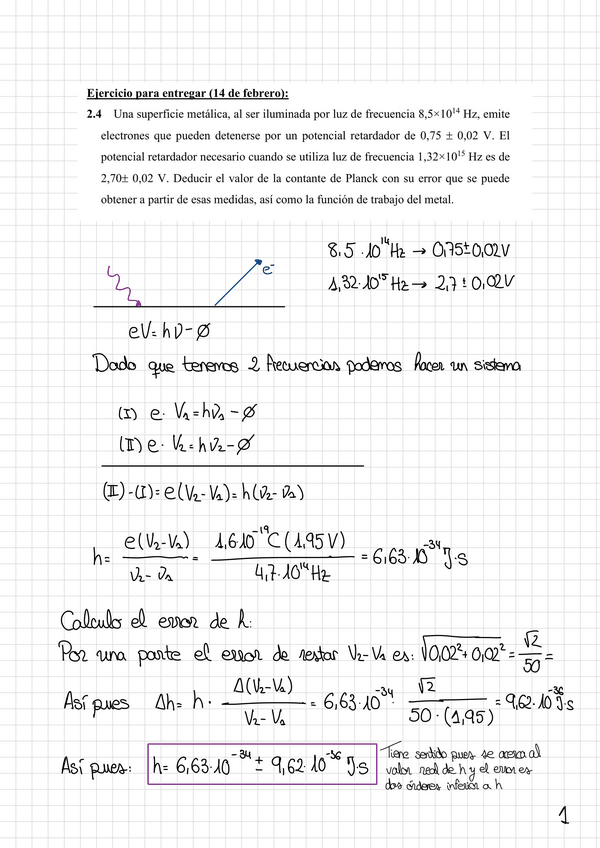 Ejercicio para entregar (14 de febrero):
2.4 Una superficie metálica, al ser iluminada por luz de frecuencia 8,5×10¹⁴ Hz, emite
electrones que pueden detenerse por un potencial retardador de 0,75 ± 0,02 V. El
potencial retardador necesario cuando se utiliza luz de frecuencia 1,32×10¹⁵ Hz es de
2,70± 0,02 V. Deducir el valor de la contante de Planck con su error que se puede
obtener a partir de esas medidas, así como la función de trabajo del metal.
8,5·10¹⁴Hz → 0,75±0,02V
1,32·10¹⁵Hz → 2,7±0,02V
e⁻
eV=hν-ϕ
Dado que tenemos 2 frecuencias podemos hacer un sistema
(I) e·V₁=hν₁-ϕ
(II) e·V₂=hν₂-ϕ
(II)-(I)=e(V₂-V₁)=h(ν₂-ν₁)
h= e(V₂-V₁)/(ν₂-ν₁) = 1,6·10⁻¹⁹C(1,95V)/4,7·10¹⁴Hz = 6,63·10⁻³⁴J·s
Calculo el error de h:
Por una parte el error de restar V₂-V₁ es: √(0,02²+0,02²) = √2/50 =
Así pues Δh= h· Δ(V₂-V₁)/(V₂-V₁) = 6,63·10⁻³⁴· √2/(50·(1,95)) = 9,62·10⁻³⁶J·s
Así pues: h= 6,63·10⁻³⁴ ± 9,62·10⁻³⁶ J·s
Tiene sentido pues se acerca al
valor real de h y el error es
dos órdenes inferior a h
1